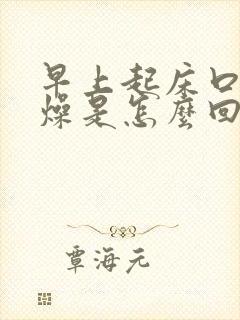 早上起床口
燥是怎麼回
覃海元